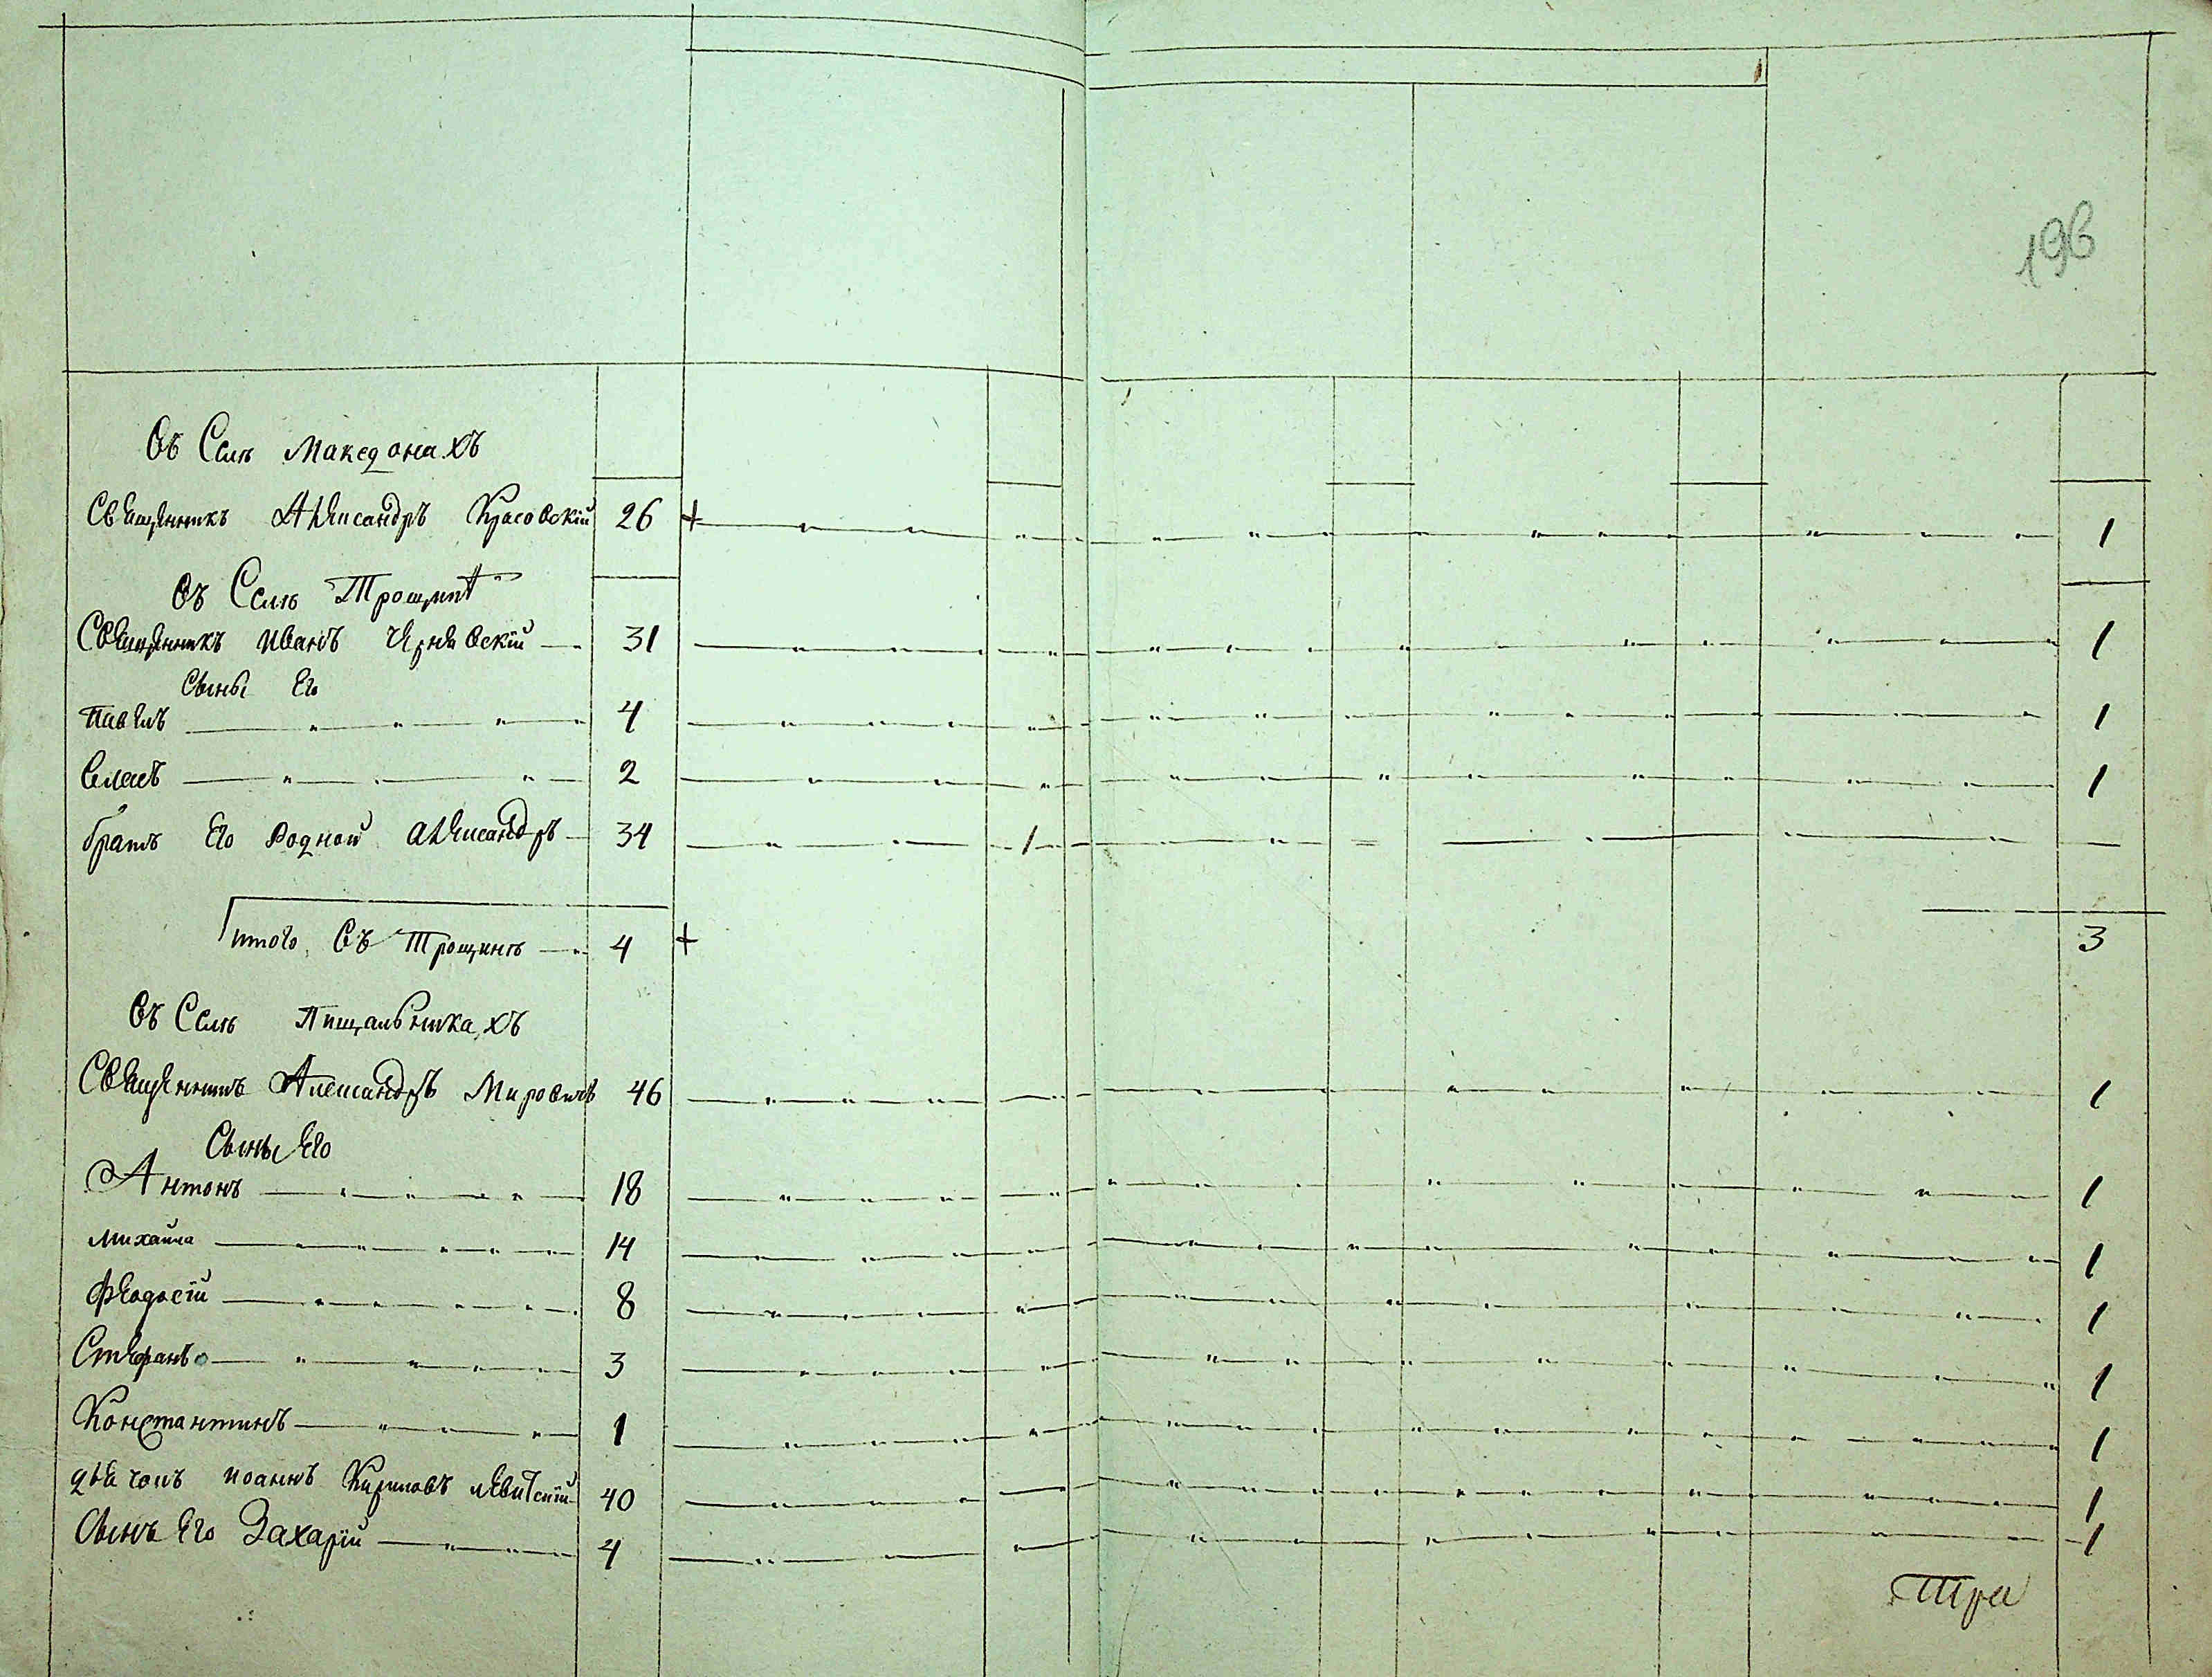 196
Въ Селѣ Македонахъ
Священникъ Александръ Красовскій 26 + 1
Въ Селѣ Трощинѣ
Священникъ Иванъ Чернявскій 31 1
Сыны Его
Павелъ 4 1
Власъ 2 1
братъ Его Родной Александръ 34 1
итого Въ Трощинѣ 4 + 3
Въ Селѣ Пищальникахъ
Священникъ Александръ Мировичъ 46 1
Сыны Его
Антонъ 18 1
Михаила 14 1
Феодосій 8 1
Стефанъ 3 1
Константинъ 1 1
дьячокъ Иоаннъ Кириловъ Левитскій 40 1
Сынъ Его Захарій 4 1